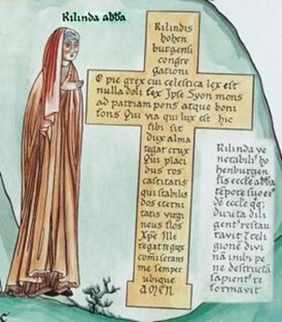 Rilinda abba
Rilindis
hohen
burgensi
congre
gationi
O pie grex cui celestica lex est
nulla doli lex Ipse Syon mons
ad patriam pons atque boni
fons Qui via qui lux est hic
tibi sit
dux alma
tegat crux
Qui placi
dus ros
castitatis
qui stabilis
dos eterni
tatis virgi
neus flos
Xpe Ille
regat tegat
comiserans
me semper
ubique
AMEN
Rilinda ve
nerabilis ho
henburgen
sis eccle abba
tepore suo ei
de eccle
diruta dili
gent restau
ravit
religione divi
na inibi pe
ne destructa
sapient re
formavit